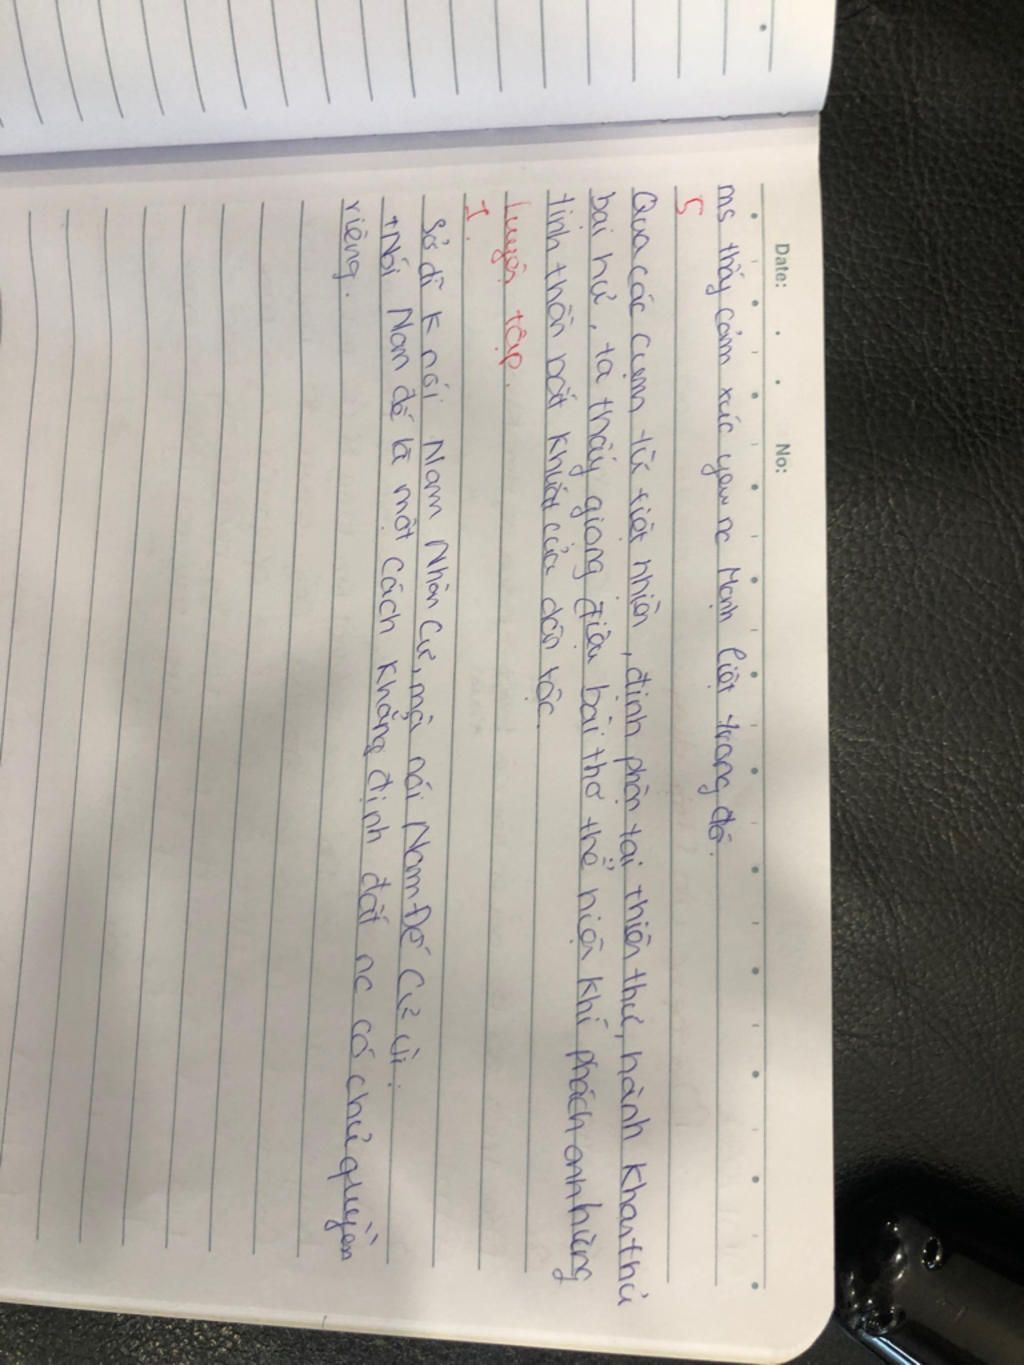 Date: No:
ms thấy cảm xúc yêu nc Mạnh liệt trong đó.
5
Qua các cụm từ tiệt nhiên, định phận tại thiên thư, hành khan thủ
bại hư, ta thấy giọng điệu bài thơ thể hiện khí phách anh hùng
tinh thần bất khuất của dân tộc.
Luyện tập.
1.
Sở dĩ k nói Nam Nhân cư, mà nói Nam Đế cư vì:
+Nói Nam đế là một cách khẳng định đất nc có chủ quyền
riêng.